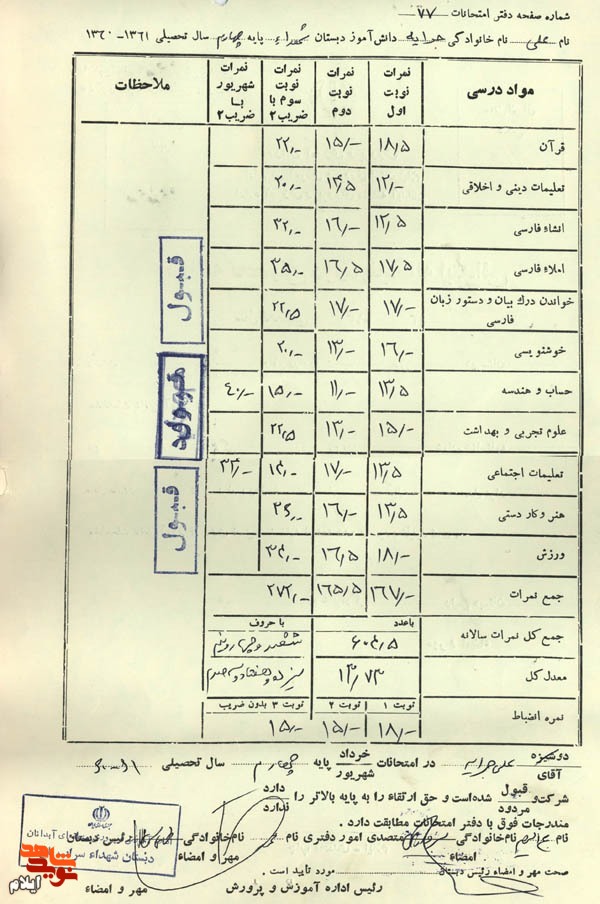 شماره صفحه دفتر امتحانات ۷۷
نام علی نام خانوادگی حرایه دانش‌آموز دبستان شهداء پایه چهارم سال تحصیلی ۱۳۶۱-۱۳۶۰
مواد درسی نمرات نوبت اول نمرات نوبت دوم نمرات نوبت سوم با ضریب ۲ نمرات شهریور با ضریب ۲ ملاحظات
قرآن ۱۸/۵ ۱۵/- ۲۲/-
تعلیمات دینی و اخلاقی ۱۲/- ۱۴/۵ ۲۰/-
انشاء فارسی ۱۲/۵ ۱۶/- ۳۲/-
املاء فارسی ۱۷/۵ ۱۶/۵ ۳۵/-
خواندن درک بیان و دستور زبان فارسی ۱۷/- ۱۷/- ۲۲/۵
خوشنویسی ۱۶/- ۱۳/- ۲۰/-
حساب و هندسه ۱۳/۵ ۱۱/- ۱۵/- ۴۰/-
علوم تجربی و بهداشت ۱۵/- ۱۳/- ۲۲/۵
تعلیمات اجتماعی ۱۳/۵ ۱۷/- ۱۴/- ۳۴/-
هنر و کار دستی ۱۳/۵ ۱۶/- ۲۶/-
ورزش ۱۸/- ۱۶/۵ ۳۴/-
جمع نمرات ۱۶۷/- ۱۶۵/۵ ۲۷۲/-
قبول
قبول
باعدد با حروف
جمع کل نمرات سالانه ۶۰۴/۵ ششصد و چهار و نیم
معدل کل ۱۳/۷۳ سیزده و هفتاد و سه صدم
نوبت ۱ نوبت ۲ نوبت ۳ بدون ضریب
نمره انضباط ۱۸/- ۱۵/- ۱۵/-
دوشیزه
آقای علی حرایه در امتحانات خرداد شهریور پایه چهارم سال تحصیلی
شرکت و قبول مردود شده‌است و حق ارتقاء را به پایه بالاتر را دارد ندارد
مندرجات فوق با دفتر امتحانات مطابقت دارد.
نام نام‌خانوادگی متصدی امور دفتری نام نام‌خانوادگی رئیس دبستان
امضاء مهر و امضاء
صحت مهر و امضاء رئیس دبستان مورد تأیید است.
رئیس اداره آموزش و پرورش مهر و امضاء
دبستان شهداء
نوید شاهد
ایلام